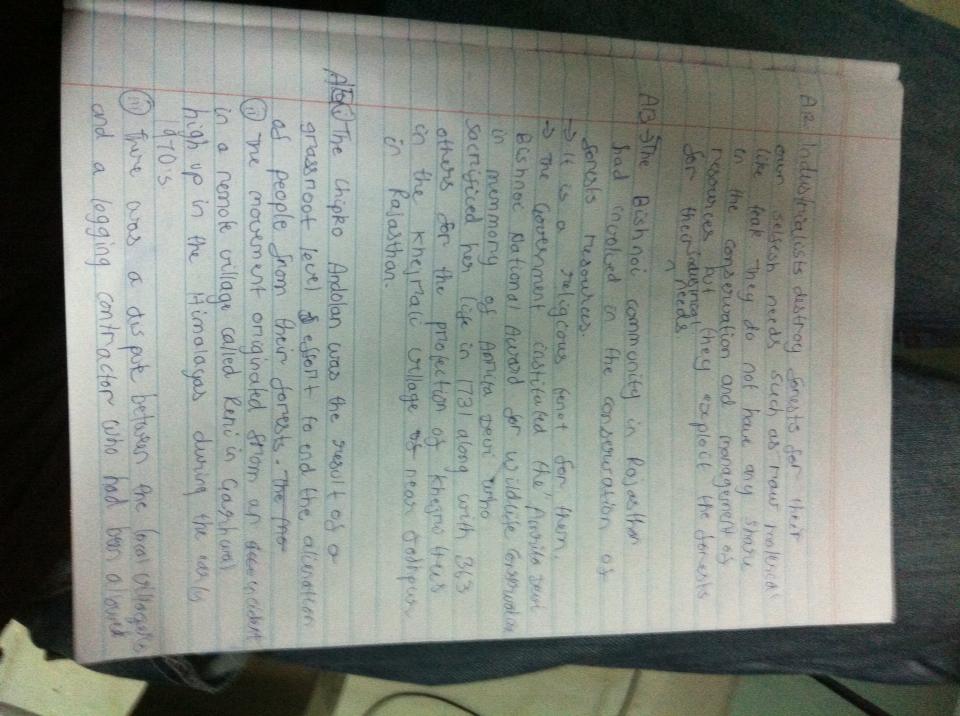 A12. Industrialists destroy forests for their
own selfish needs such as raw material
like teak They do not have any share
in the conservation and mangement of
resources but they exploit the forests
for their industrial needs.
A13 → The Bishnoi community in Rajasthan
had involved in the conservation of
forests resources.
→ It is a religious tenet for them.
→ The Government instituted the 'Amrita Devi
Bishnoi National Award for wildlife Conservation
in memmory of Amrita Devi who
sacrificed her life in 1731 along with 363
others for the protection of khejri trees
in the khejrali village of near Jodhpur
in Rajasthan.
(i) The Chipko Andolan was the result of a
grassroot level effort to end the alienation
of people from their forests. The mo
(ii) The movement originated from an incident
in a remote village called Reni in Garhwal
high up in the Himalayas during the early
1970's
(iii) There was a dispute between the local villagers
and a logging contractor who had been allowed